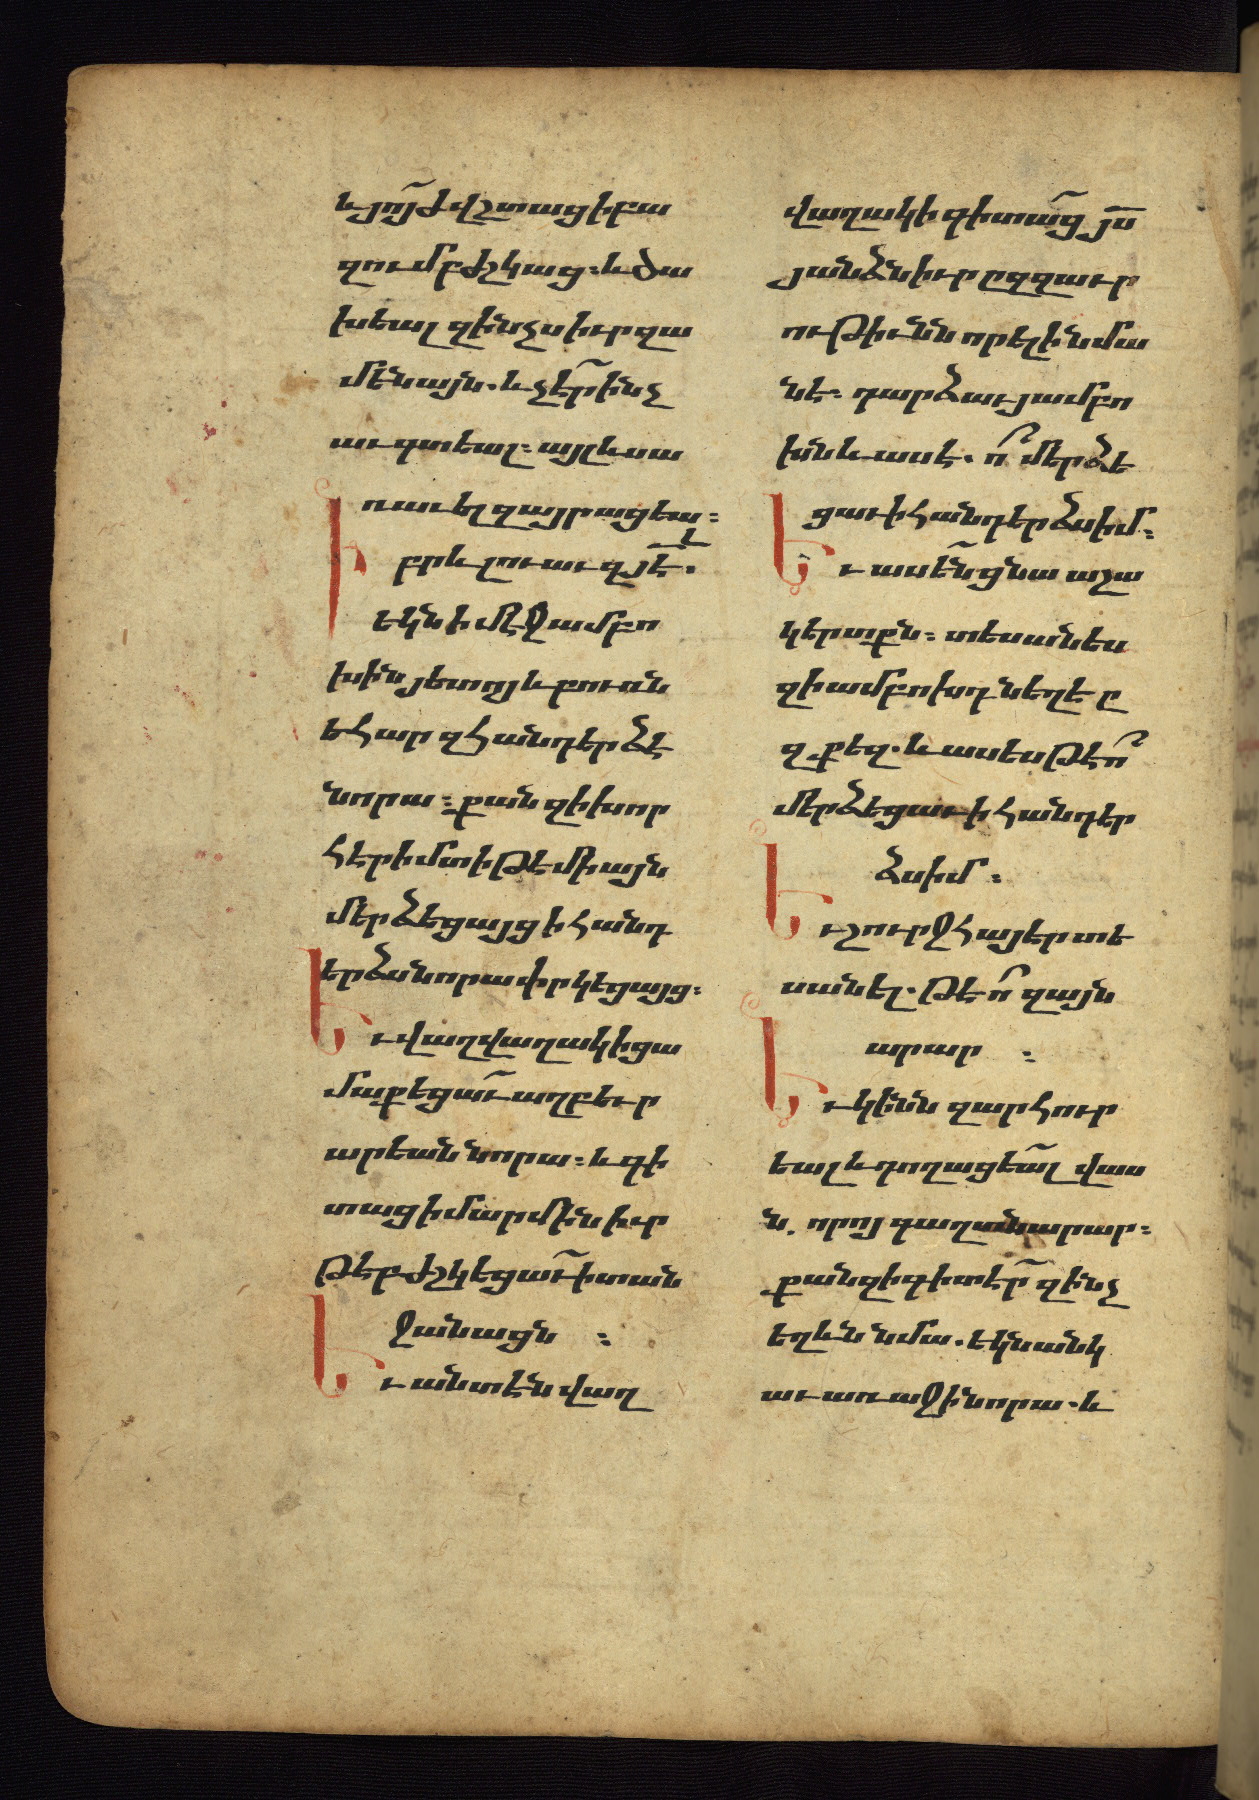 և յոյժ վշտացի ՚ի բա
զում բժշկաց։ և ծա
խեալ զինչս իւր զա
մենայն. և չէր ինչ
աւգտեալ։ այլ ևս ա
ռաւել զայրացեա։
Իբրև լուաւ զյէ.
եկն ի մէջ ամբո
խին յետոյ և բուռն
եհար զհանդերձէ
նորա։ քանզի խոր
հէր ի մտի թէ միայն
մերձեցայց ի հանդ
երձ նորա փրկեցայց։
Եւ վաղվաղակի ցա
մաքեցաւ աղբեւր
արեան նորա։ և գի
տաց ի մարմին իւր
թե բժշկեցաւ ի տան
ջանացն ։
Եւ անտէն վաղ
վաղակի գիտաց յս
յանձն իւր ըզզաւր
ութիւնն որ ել ի նմա
նէ։ դարձաւ յամբո
խն և ասէ. ո՞ մերձե
ցաւ ի հանդերձս իմ։
Եւ ասեն ցնա աշա
կերտքն։ տեսանես
զի ամբոխդ նեղէ ը
զքեզ. և ասես թէ ո՞
մերձեցաւ ի հանդեր
ձս իմ ։
Եւ շուրջ հայեր տե
սանել. թէ ո՞ զայն
արար ։
Եւ կինն զարհուր
եալ և դողացեալ վաս
ն. որոյ գաղտն արար։
քանզի գիտէր զինչ
եղև ն նմա. եկն անկ
աւ առաջի նորա. և